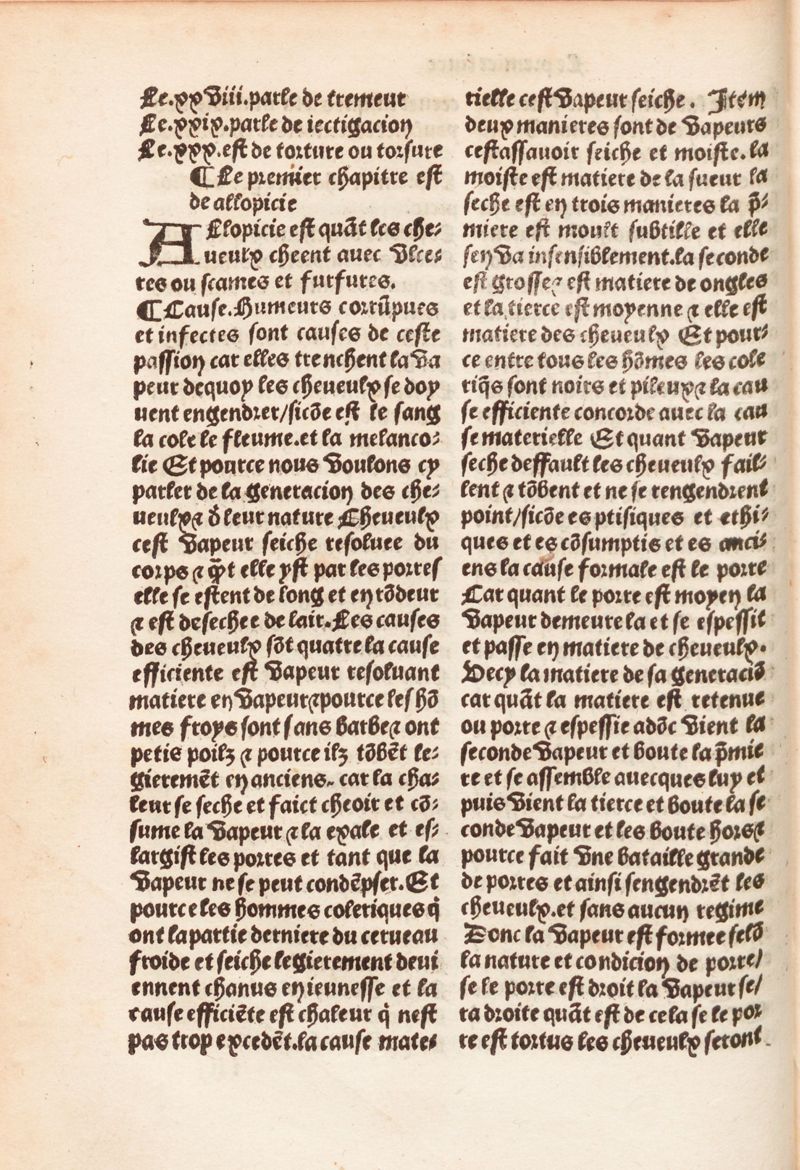 Le.xxviii.parle de tremeur
Le.xxix.parle de iectigacion
Le.xxx.est de torture ou torsure
¶ Le premier chapitre est
de allopicie
Allopicie est quãt les che-
ueulx cheent auec vlce-
res ou scames et furfures.
¶ Cause. Humeurs corrũpues
et infectes sont causes de ceste
passion car elles trenchent la va
peur dequoy les cheueulx se doy
uent engendrer/sicõe est le sang
la cole le fleume.et la melanco-
lie Et pource nous voulons cy
parler de la generacion des che-
ueulx ⁊ d̕ leur nature Cheueulx
cest vapeur seiche resoluee du
corps ⁊ qñt elle yst par les porres
elle se estent de long et en rõdeur
⁊ est desechee de lair. Les causes
des cheueulx sõt quatre la cause
efficiente est vapeur resoluant
matiere en vapeur ⁊ pource les hõ
mes froys sont sans barbe ⁊ ont
petis poilz ⁊ pource ilz tõbẽt le-
gieremẽt en anciens. car la cha-
leur se seche et faict cheoir et cõ-
sume la vapeur ⁊ la exale et es-
largist les porres et tant que la
vapeur ne se peut condẽpser. Et
pource les hommes coleriques q̃
ont la partie derniere du cerueau
froide et seiche legierement deui
ennent chanus en ieunesse et la
cause efficiẽte est chaleur q̃ nest
pas trop excedẽt.la cause mate-
rielle cest vapeur seiche. Item
deux manieres sont de vapeurs
cestassauoir seiche et moiste.la
moiste est matiere de la sueur la
seche est en trois manieres la p̃-
miere est moult subtille et elle
sen va insensiblement.la seconde
est grosse ⁊ est matiere de ongles
et la tierce est moyenne ⁊ elle est
matiere des cheueulx Et pour-
ce entre tous les hõmes les cole
riq̃s sont noirs et pileux ⁊ la cau
se efficiente concorde auec la cau
se materielle Et quant vapeur
seche deffault les cheueulx fail-
lent ⁊ tõbent et ne se rengendrent
point/sicõe es ptisiques et ethi-
ques et es cõsumptis et es anci-
ens la cause formale est le porre
Car quant le porre est moyen la
vapeur demeure la et se espessit
et passe en matiere de cheueulx.
Vecy la matiere de sa generaciõ
car quãt la matiere est retenue
ou porre ⁊ espessie adõc vient la
seconde vapeur et boute la p̃mie
re et se assemble auecques luy et
puis vient la tierce et boute la se
conde vapeur et les boute hors ⁊
pource fait vne bataille grande
de porres et ainsi sengendrẽt les
cheueulx.et sans aucun regime
Donc la vapeur est formee selõ
la nature et condicion de porre/
se le porre est droit la vapeur se/
ra droite quãt est de cela se le por
re est tortus les cheueulx seront